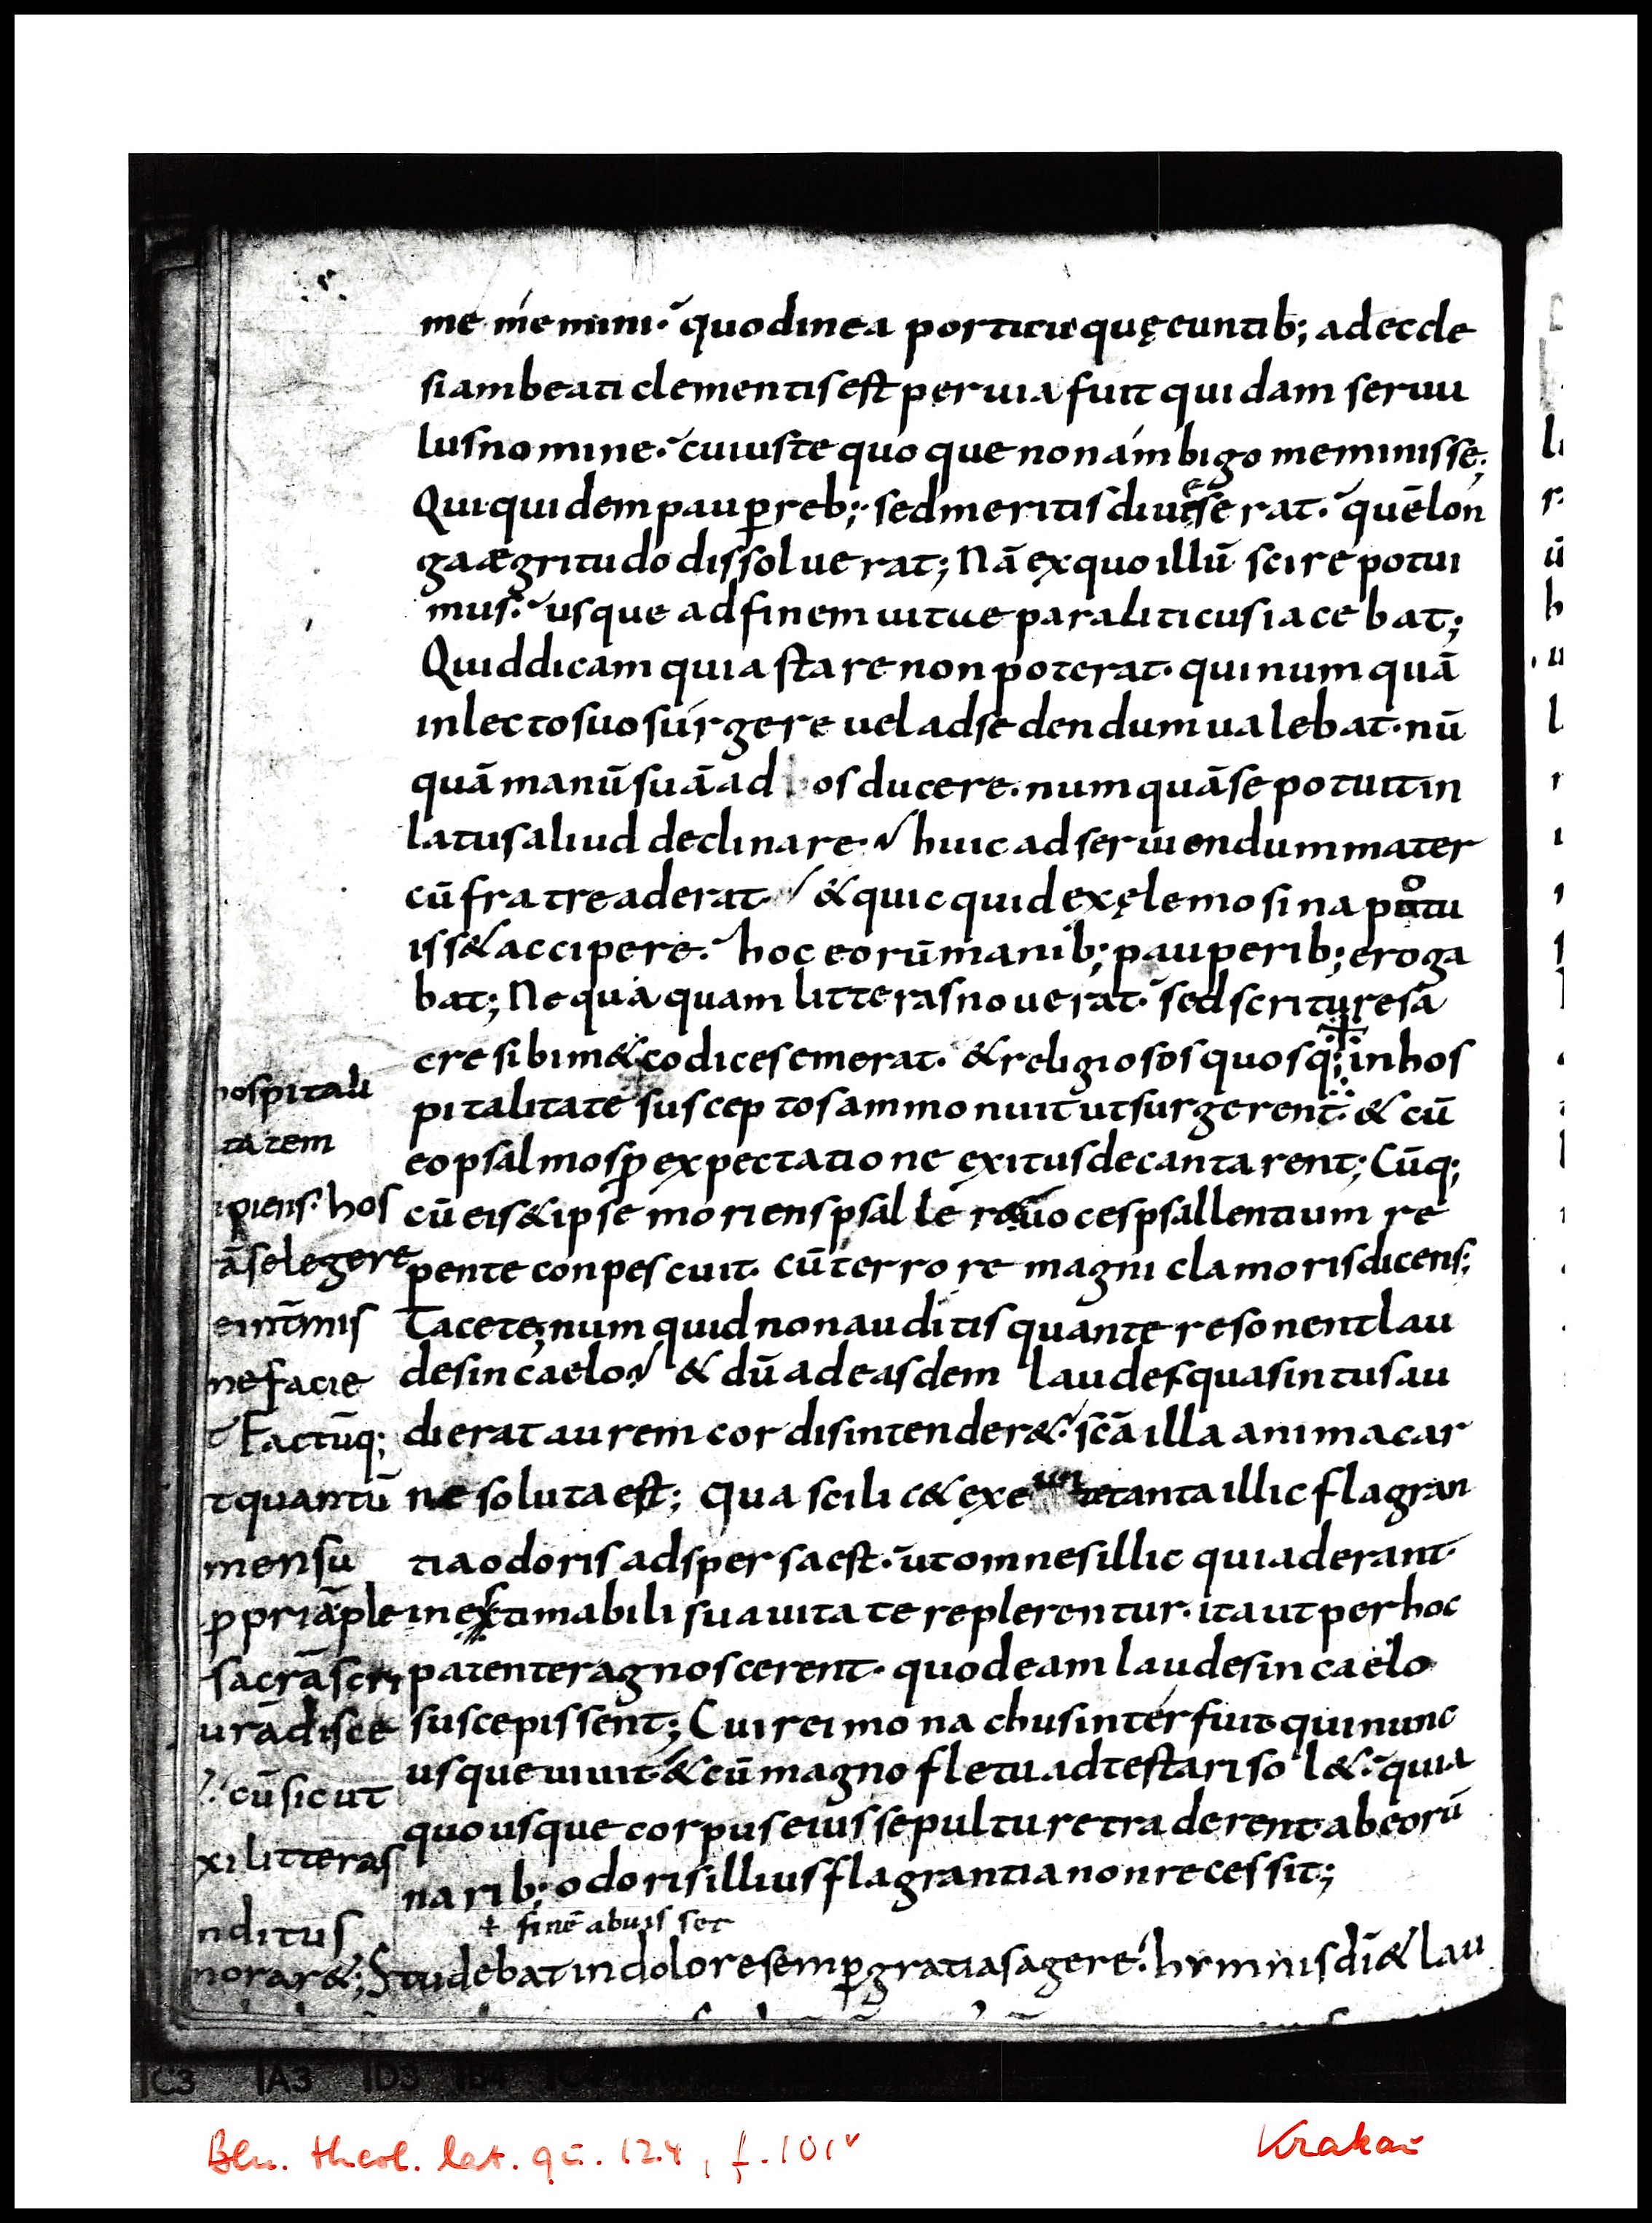 me memini· quod in ea porticu quę euntib; ad eccle
siam beati clementis est peruia fuit quidam seruu
lus nomine· cuius te quoque non ambigo meminisse;
Qui quidem paup̄ reb; sed meritis diues erat· quē lon
ga ægritudo dissoluerat; Nā ex quo illū scire potui
mus· usque ad finem uitae paraliticus iacebat;
Quid dicam quia stare non poterat· qui numquā
in lecto suo surgere uel ad sedendum ualebat· nū
quā manū suā ad os ducere· numquā se potuit in
latus aliud declinare· huic ad seruiendum mater
cū fratre aderat· & quicquid ex ęlemosina potu
iss& accipere· hoc eorū manib; pauperib; eroga
bat; Nequaquam litteras nouerat· sed scrituresa
cre sibim& codices emerat· & religiosos quosq; in hos
pitalitatē susceptos ammonuit ut surgerent· & cū
eo psalmos p̄ expectatione exitus decantarent; Cūq;
cū eis & ipse moriens psalleret uoces psallentium re
pente conpescuit· cū terrore magni clamoris dicens;
Tacete; numquid non auditis quante resonent lau
des in caelo & dū ad easdem laudes quas intus au
dierat aurem cordis intender& scā illa anima car
ne soluta est; Qua scilic& exeunte tanta illic flagran
tia odoris adspersa est· ut omnes illic qui aderant·
inextimabili suauitate replerentur· ita ut per hoc
patenter agnoscerent· quod eam laudes in caelo
suscepissent; Cui rei monachus interfuit qui nunc
usque uiuit· & cū magno fletu adtestari sol&· quia
quousque corpus eius sepulture traderent ab eorū
narib; odoris illius flagrantia non recessit;
+ sinē abuisset
norar&; Studebat in dolore semp̄ gratias agere· hymnis dī & lau
hospitali
tatem
ipiens· hos
ā se legere
eintīmis
ne facie
t Factūq;
t quantū
mensu
p̄priā ple
sacrā scri
urā disce
cū sicut
xi litteras
nditus
Bln. theol. lat. qu. 124, f. 101v
Krakau